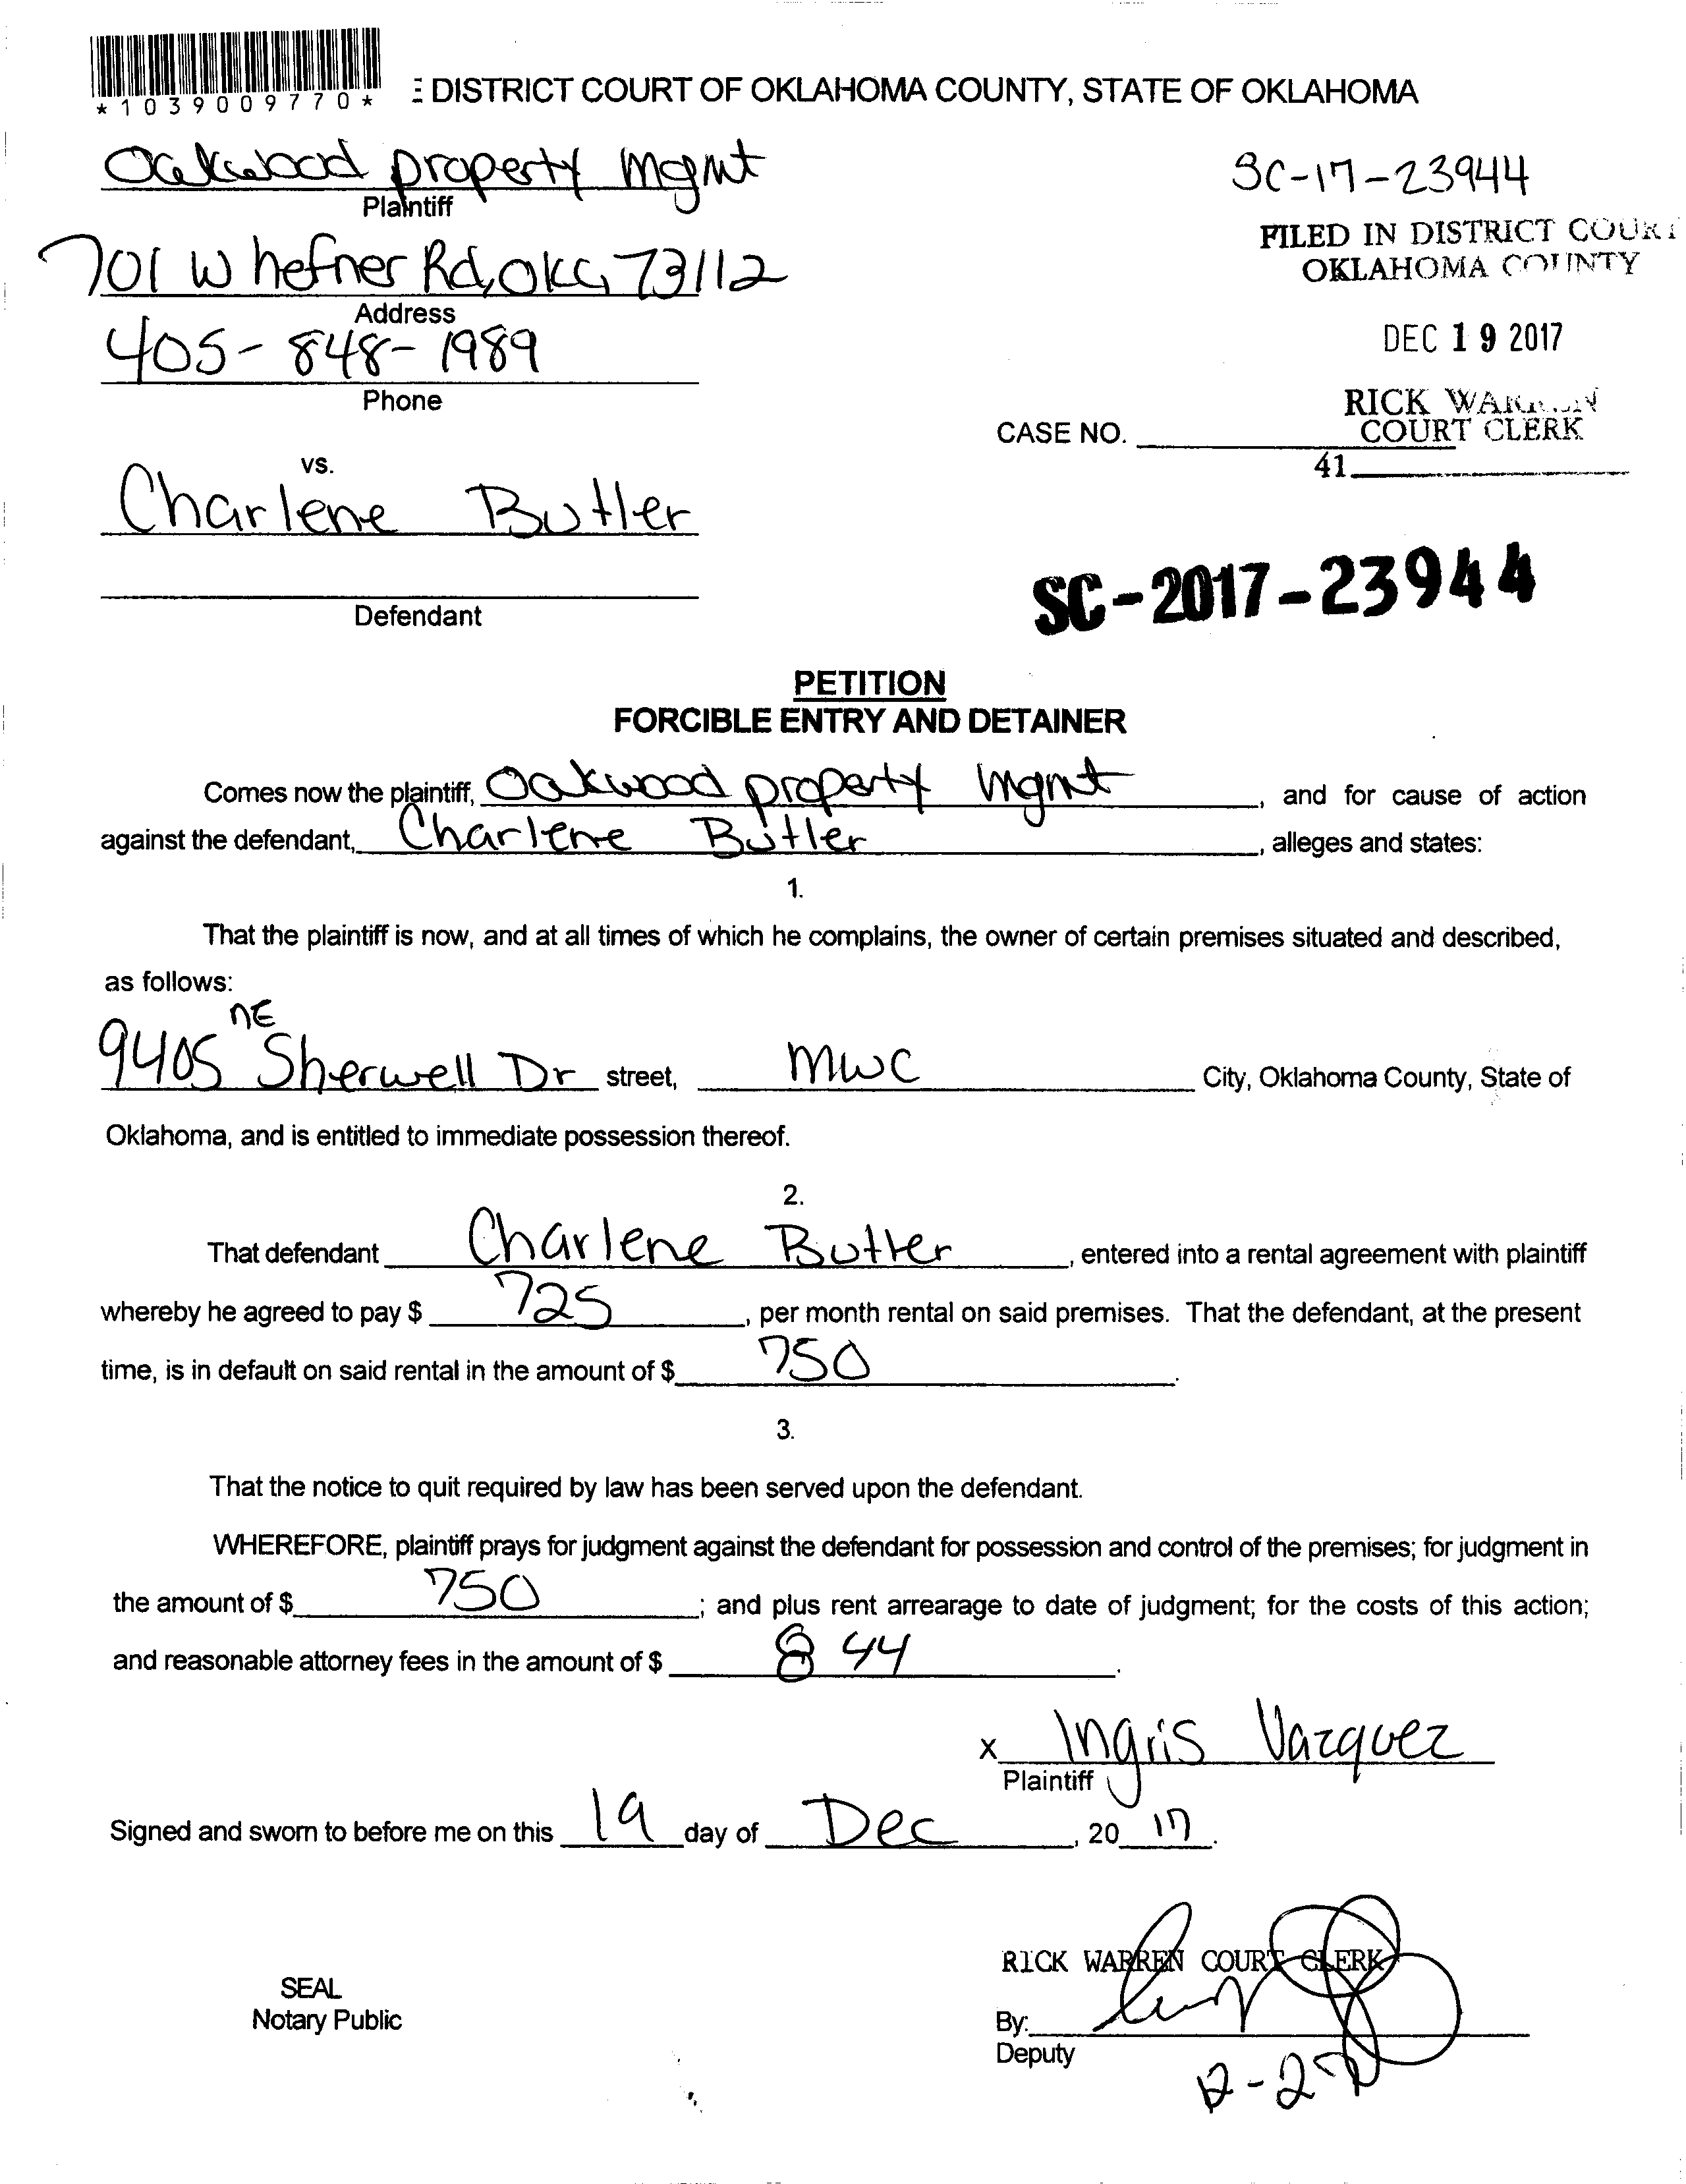 *1039009770*
DISTRICT COURT OF OKLAHOMA COUNTY, STATE OF OKLAHOMA
Oakwood property Mgmt
Plaintiff
SC-17-23944
FILED IN DISTRICT COURT
OKLAHOMA COUNTY
701 W hefner Rd, OKC, 73112
Address
405-848-1989
Phone
DEC 19 2017
RICK WARREN
COURT CLERK
CASE NO.
41
vs.
Charlene Butler
Defendant
SC-2017-23944
PETITION
FORCIBLE ENTRY AND DETAINER
Comes now the plaintiff, Oakwood property Mgmt, and for cause of action
against the defendant, Charlene Butler, alleges and states:
1.
That the plaintiff is now, and at all times of which he complains, the owner of certain premises situated and described,
as follows:
9405 NE Sherwell Dr street, MWC City, Oklahoma County, State of
Oklahoma, and is entitled to immediate possession thereof.
2.
That defendant Charlene Butler, entered into a rental agreement with plaintiff
whereby he agreed to pay $ 725, per month rental on said premises. That the defendant, at the present
time, is in default on said rental in the amount of $ 750.
3.
That the notice to quit required by law has been served upon the defendant.
WHEREFORE, plaintiff prays for judgment against the defendant for possession and control of the premises; for judgment in
the amount of $ 750; and plus rent arrearage to date of judgment; for the costs of this action;
and reasonable attorney fees in the amount of $ 844.
x Ingris Vazquez
Plaintiff
Signed and sworn to before me on this 19 day of Dec, 2017.
RICK WARREN COURT CLERK
SEAL
Notary Public
By:
Deputy